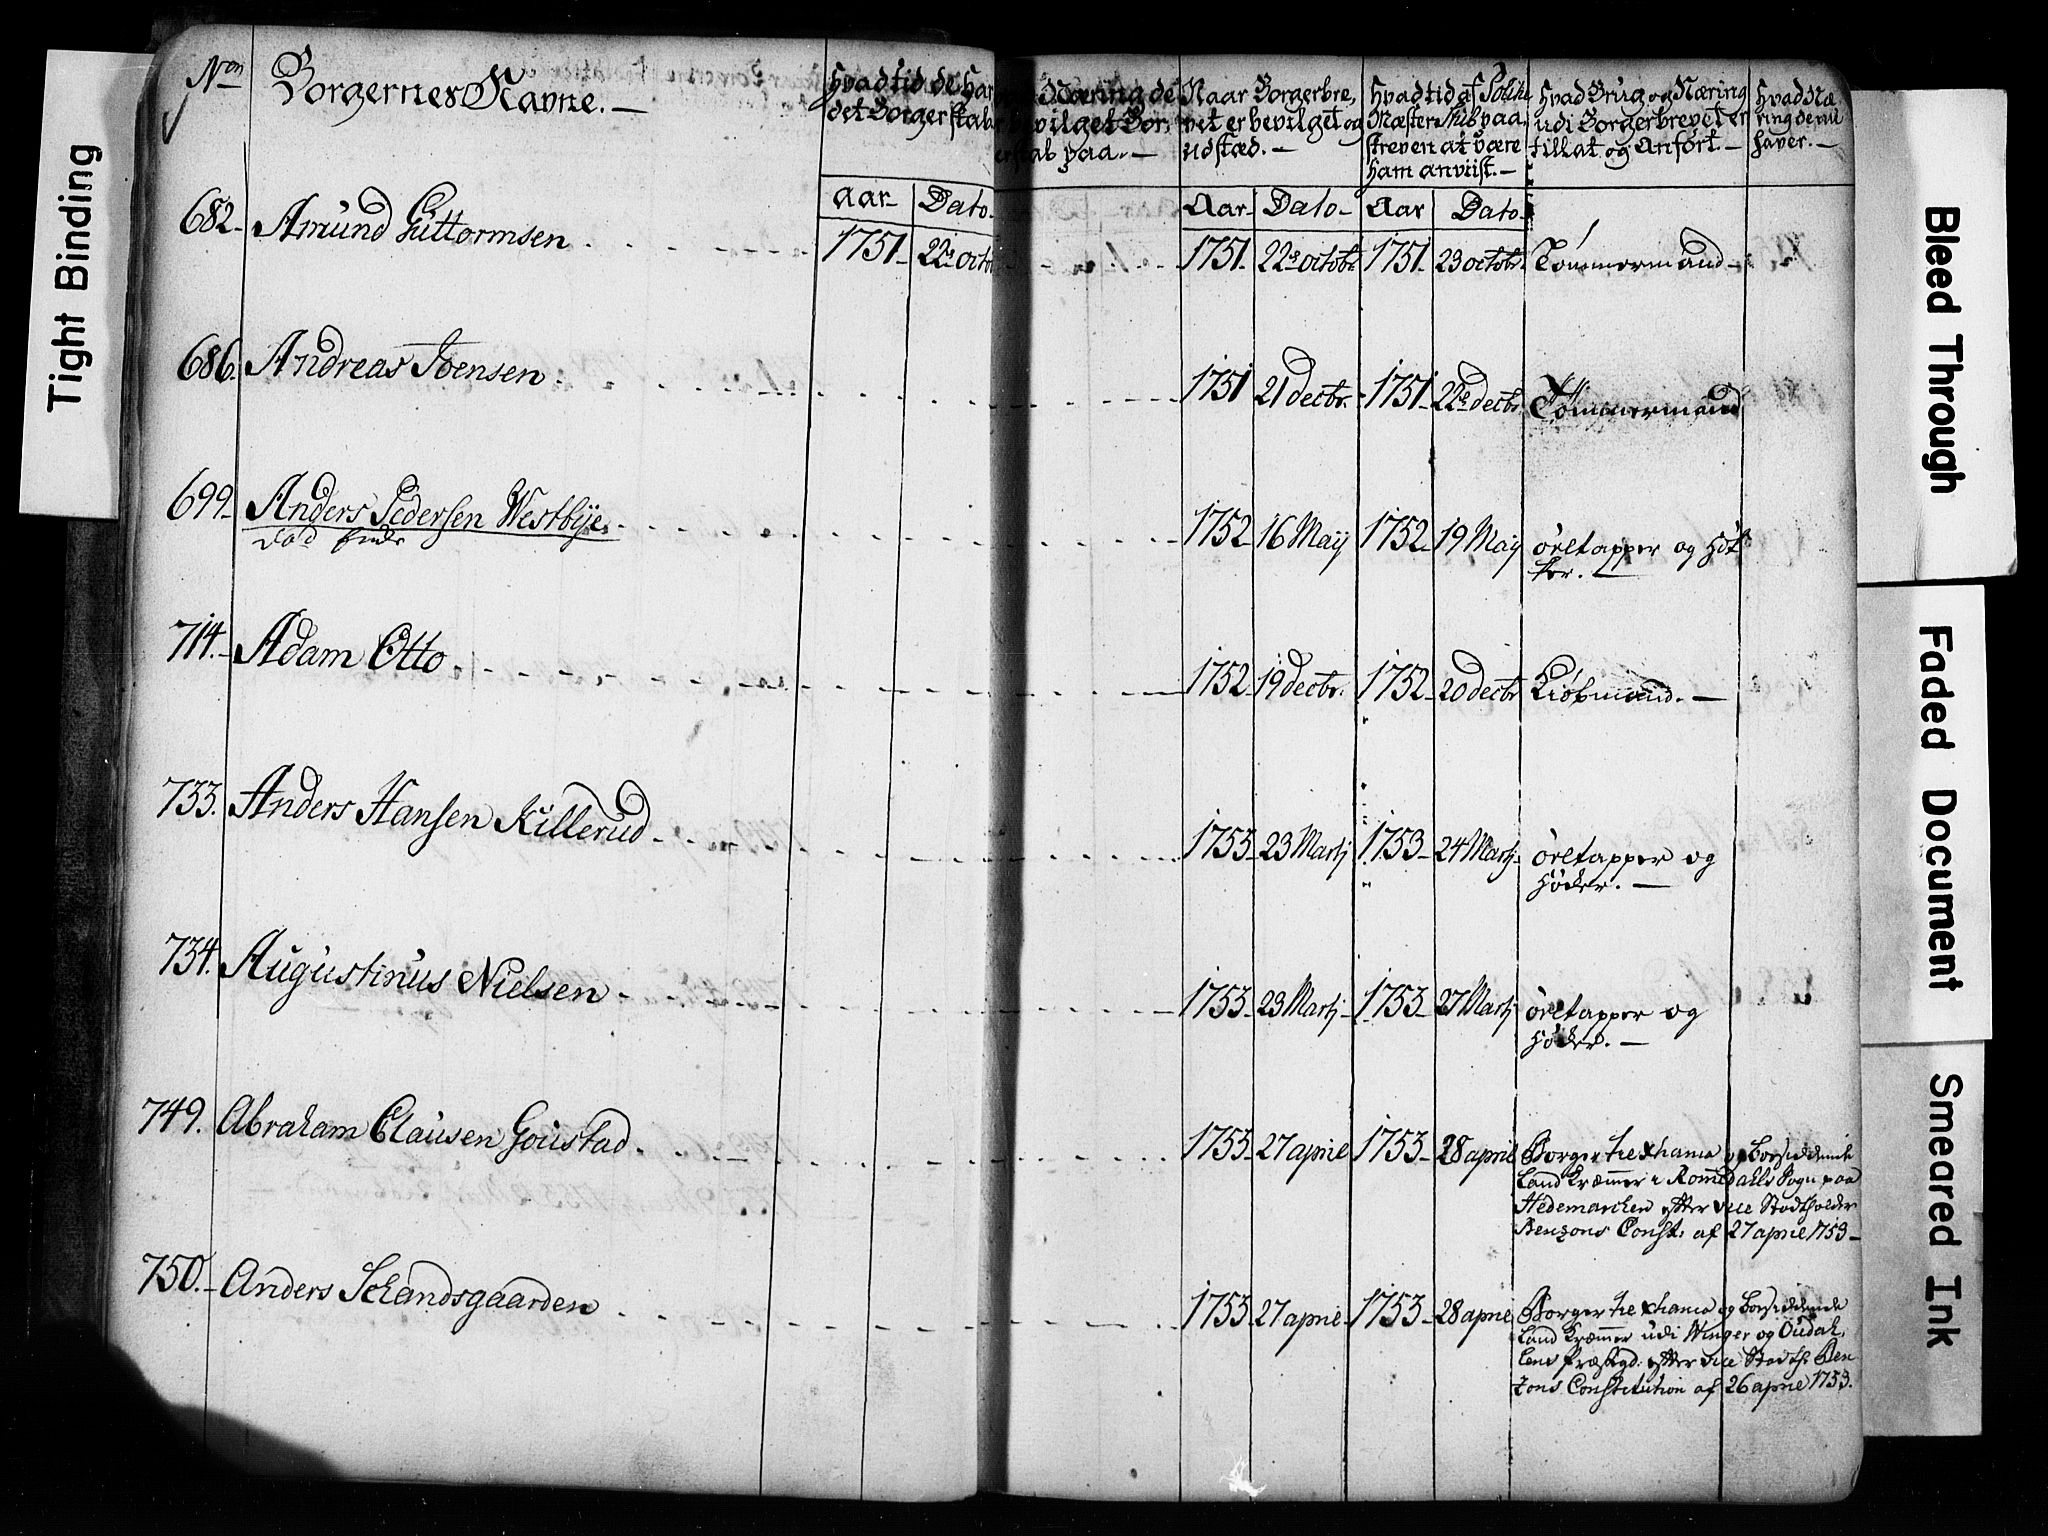 Tight Binding
Bleed Through
Faded Document
Smeared Ink
Nron Borgernes Navne. —
Hvad tid de Har
det Borgerskab
Næring de
bevilget Bor,,
erskab paa. —
Naar Borgerbre,,
vet er bevilget og
udstæd. —
Hvad tid af Politie
Mæster paa,,
skreven at være
Ham anviist. —
Hvad Brug og Næring
udi Borgerbrevet er
tillat og Anført. —
Hvad Næ,,
ring de nu
haver. —
Aar Dato Aar Dato Aar Dato
682 Amund Guttormsen 1751 22de octob 1751 22de octobr 1751 23 octobr. Tømmermand
686. Andreas Joensen 1751 21 decbr. 1751 22de decbr Tømmermand
699 Anders Pedersen Westbye. 1752 16 Maij 1752 19 Maij øretapper og Hø
ker. —
714. Adam Otto 1752 19 decbr. 1752 20 decbr Kiøbmand. —
733. Anders Hansen Killerud 1753 23 Martj 1753 24 Martj øretapper og
Høker. —
734. Augustinus Nielsen 1753 23 Martj 1753 27 Martj øretapper og
Høker. —
749. Abraham Clausen Goustad 1753 27 aprie 1753 28 aprie Borger til xhania og boesiddende
Land Kræmmer i Romedahls Sogn paa
Hedemarchen efter vice Stadtholder
Benzons Const: af 27 aprie 1753
750. Anders Schandsgaarden 1753 27 aprie 1753 28 aprie Borger til xhania og boesiddende
Land Kræmmer udi Winger og Oudah,,
lens Præstegd: efter vice Stadth: Ben
zons Constitution af 26 aprie 1753.